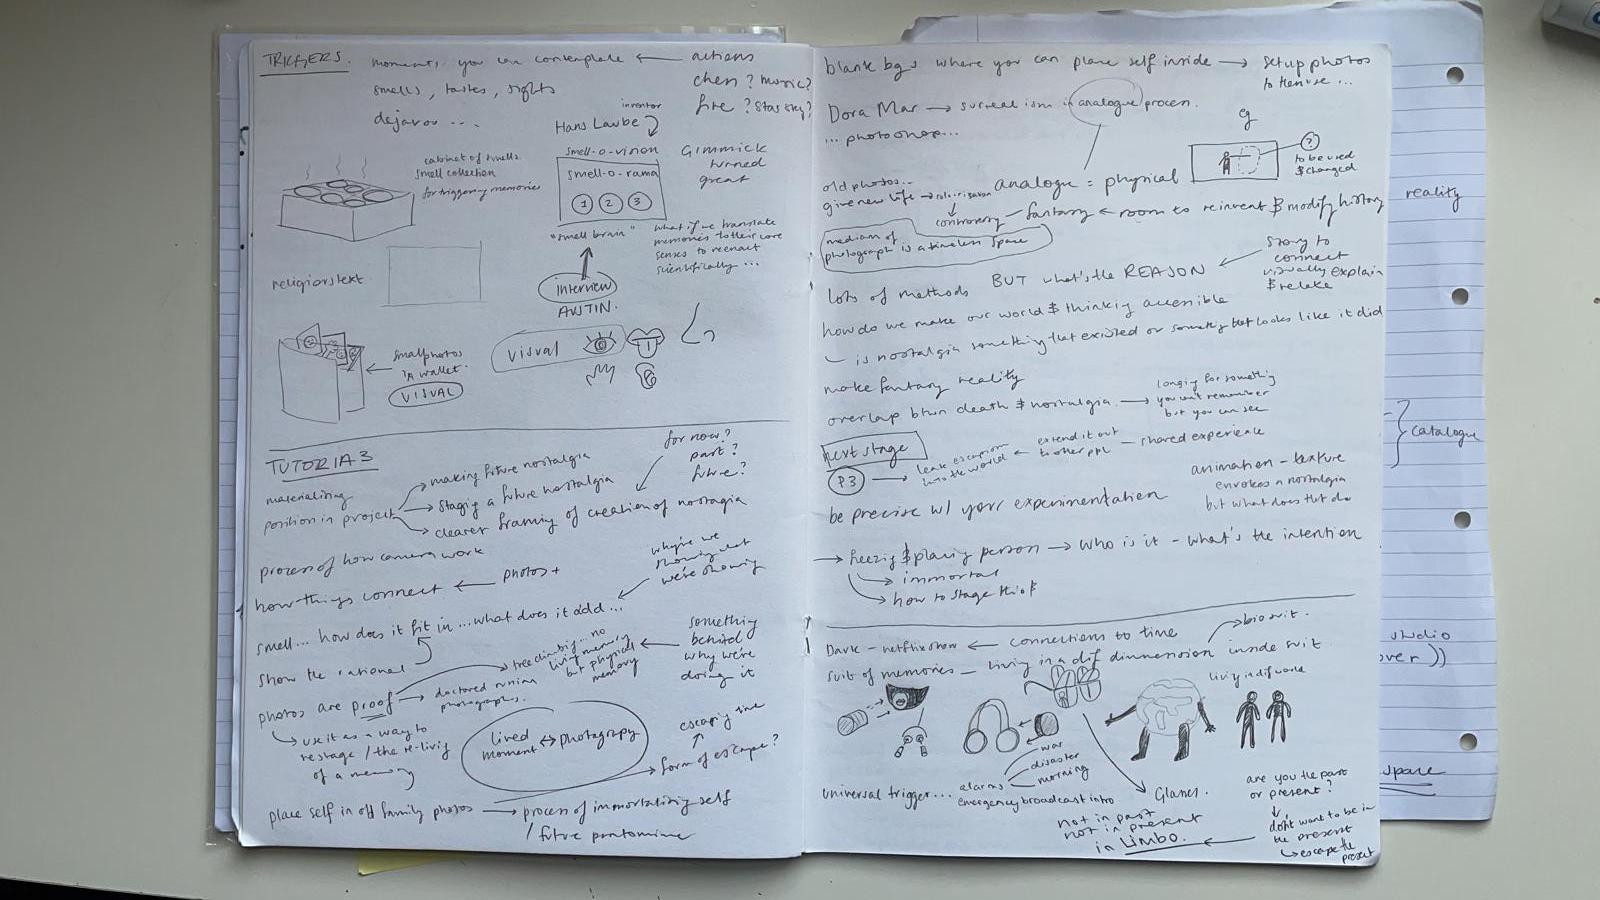 TRIGGERS.
moments you can contemplate ← actions
smells, tastes, sights
dejavou ....
chess? music?
fire? stas sky?
inventor
Hans Laube
smell-o-vision
smell-o-rama
1 2 3
"smell brain"
Gimmick
turned
great
cabinet of smells
smell collection
for triggering memories
what if we translate
memories to their core
senses to reenact
scientifically ...
religious text
interview
AWTIN.
small photos
in wallet.
VISUAL
visual
TUTORIAL 3
for now?
past?
future?
materialising
position in project
→ making future nostalgia
→ staging a future nostalgia
→ clearer framing of creation of nostalgia
process of how camera work
how things connect ← photos +
why're we
showing what
we're showing
smell... how does it fit in ... what does it add ...
show the rational
something
behind
why we're
doing it
→ tree climbing... no
living memory
but physical
memory
photos are proof → doctored russian
photographs.
→ use it as a way to
restage / the re-living
of a memory
lived
moment ↔ photograpy
escaping time
↑
form of escape?
place self in old family photos → process of immortalising self
/ future pantomime
blank bgs where you can place self inside → setup photos
to then use ...
Dora Mar → surrealism in analogue process.
... photoshop...
eg
?
to be used
& changed
old photos..
give new life → colorisation
analogue = physical
controversy - fantasy ← room to reinvent & modify history
reality
medium of
photograph is a timeless space
lots of methods BUT what's the REASON
story to
connect
visually explain
& relate
how do we make our world & thinking accessible
is nostalgia something that existed or something that looks like it did
make fantasy reality
overlap btwn death & nostalgia. → longing for something
you can't remember
but you can see
catalogue
next stage
P3 → leak escapism
into the world ← extend it out
to other ppl — shared experience
animation - texture
envokes a nostalgia
but what does that do
be precise w/ your experimentation
→ freezing & placing person → who is it - what's the intention
→ immortal
→ how to stage this
Dark - netflix show ← connections to time
→ bio suit.
suit of memories — living in a dif dimmension inside suit
living in dif world
studio
over ))
space
universal trigger... alarms
war
disaster
morning
emergency broadcast intro
Glasses.
not in past
not in present
in Limbo.
are you the past
or present?
↓
don't want to be in
the present
→ escape the
present